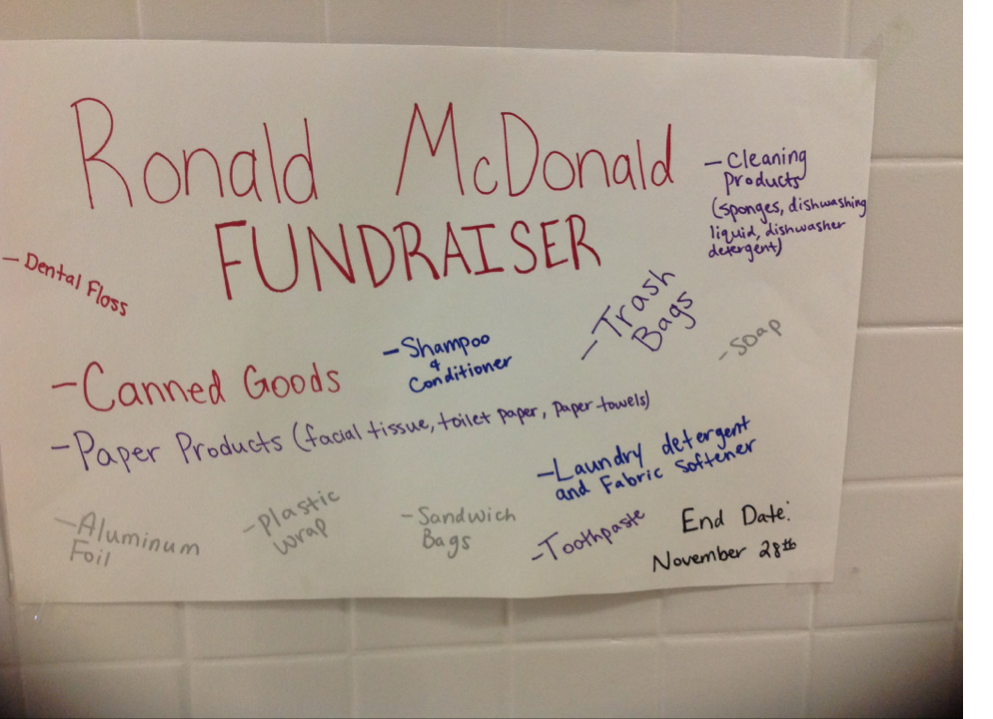 Ronald McDonald
FUNDRAISER
- Cleaning
Products
(sponges, dishwashing
liquid, dishwasher
detergent)
- Dental Floss
- Trash
Bags
- Soap
- Shampoo
&
Conditioner
- Canned Goods
- Paper Products (facial tissue, toilet paper, paper towels)
- Laundry detergent
and Fabric Softener
- Aluminum
Foil
- plastic
wrap
- Sandwich
Bags
- Toothpaste
End Date:
November 28th